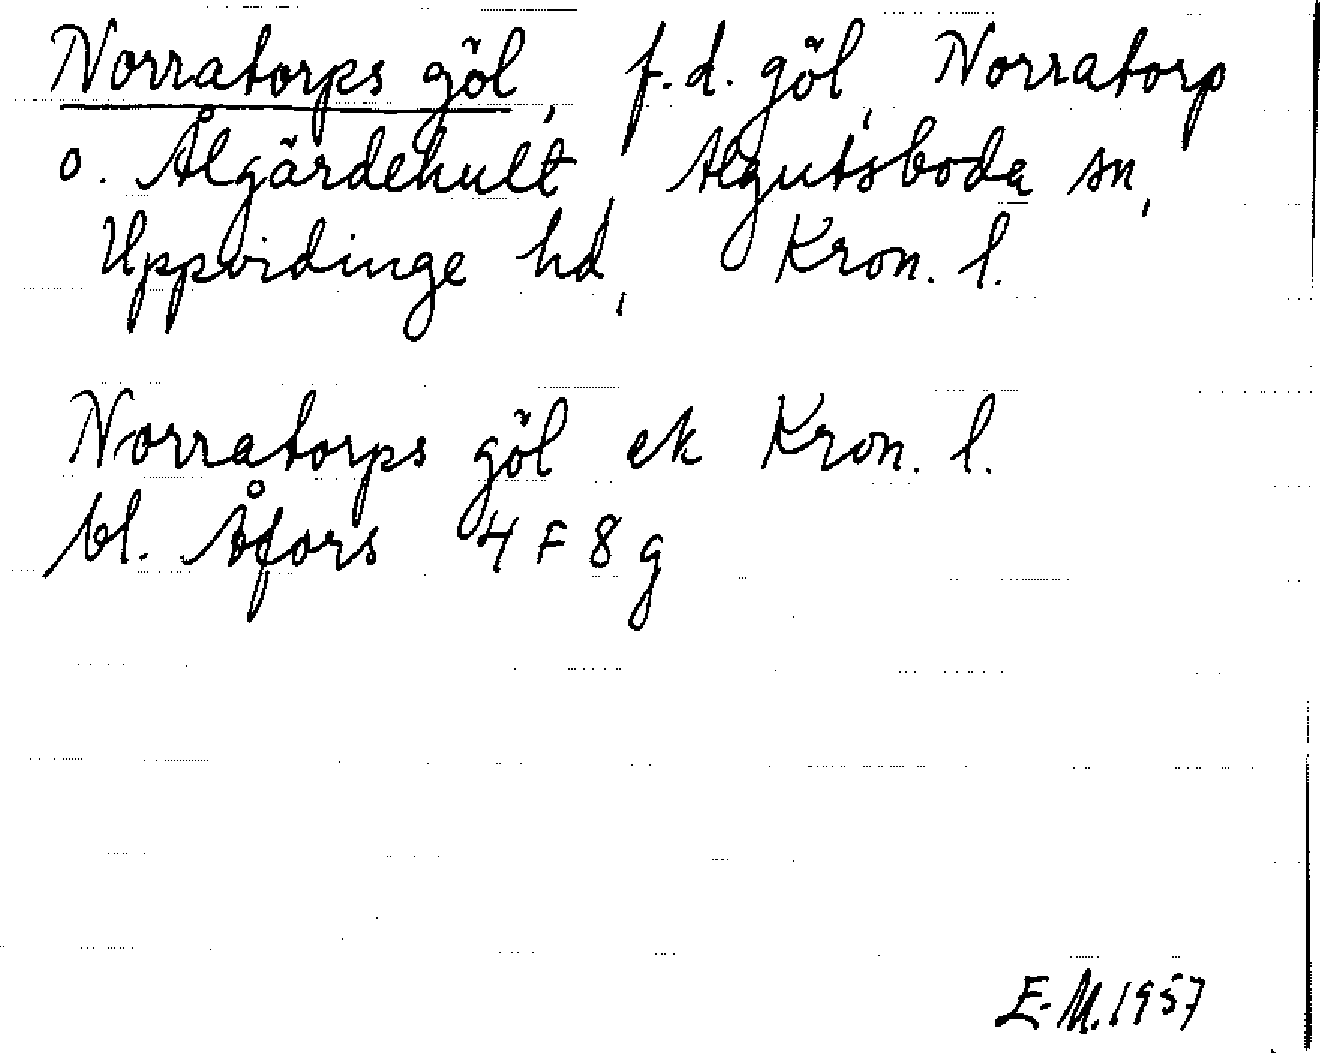 Norratorps göl, f.d. göl, Norratorp
o. Ålgärdehult, Algutsboda sn,
Uppvidinge hd, Kron. l.
Norratorps göl ek Kron. l.
bl. Åfors 4 F 8 g
E.M. 1957